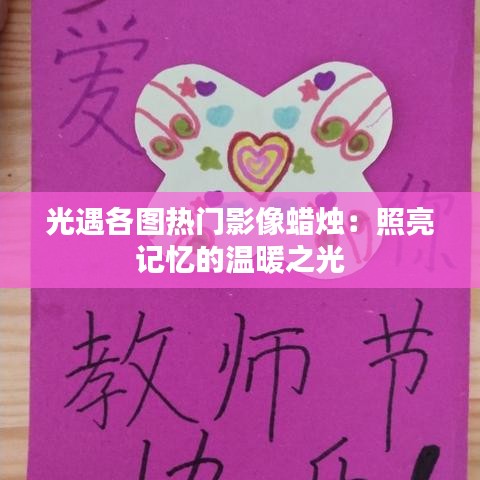 爱
你
光遇各图热门影像蜡烛：照亮
记忆的温暖之光
教师节
快乐！